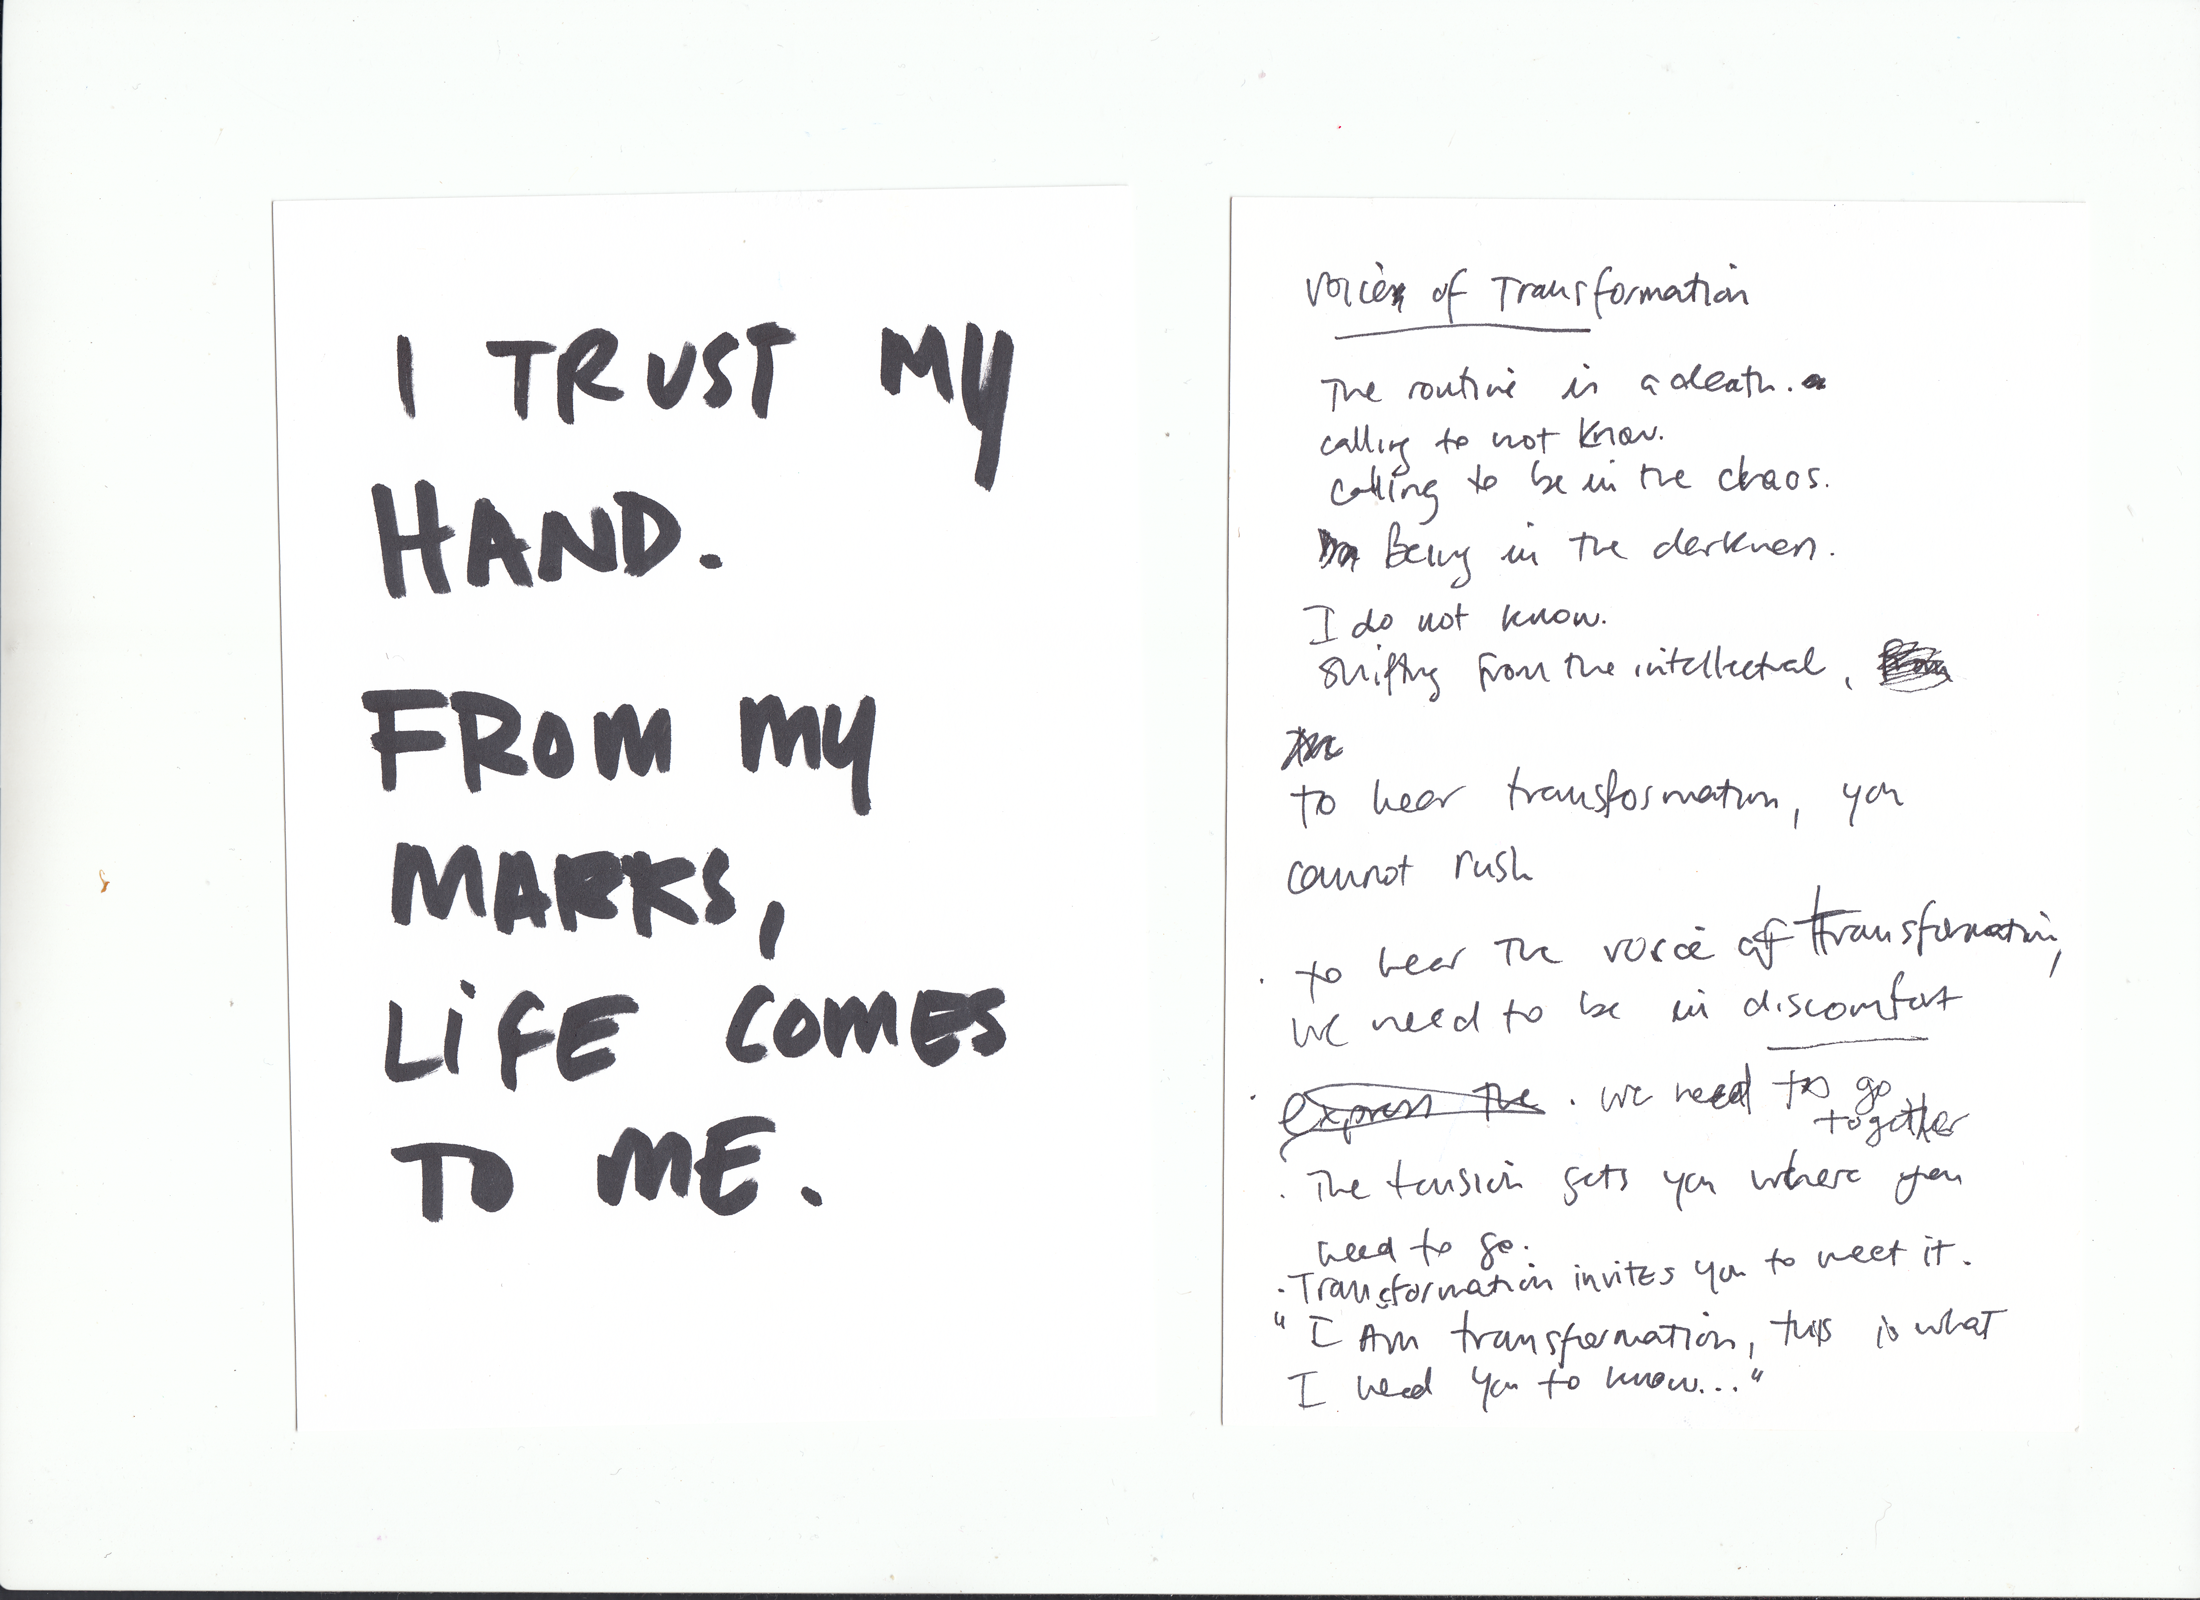 I TRUST MY
HAND.
FROM MY
MARKS,
LiFE COMES
TO ME.
Voice of Transformation
The routine is a death.
calling to not know.
calling to be in the chaos.
Being in the darkness.
I do not know.
Shifting from the intellectual,
to hear transformation, you
cannot rush
. to hear the voice of transformation,
we need to be in discomfort
. express the . we need to go
together
. The tension gets you where you
need to go.
. Transformation invites you to meet it.
"I Am transformation, this is what
I need you to know..."